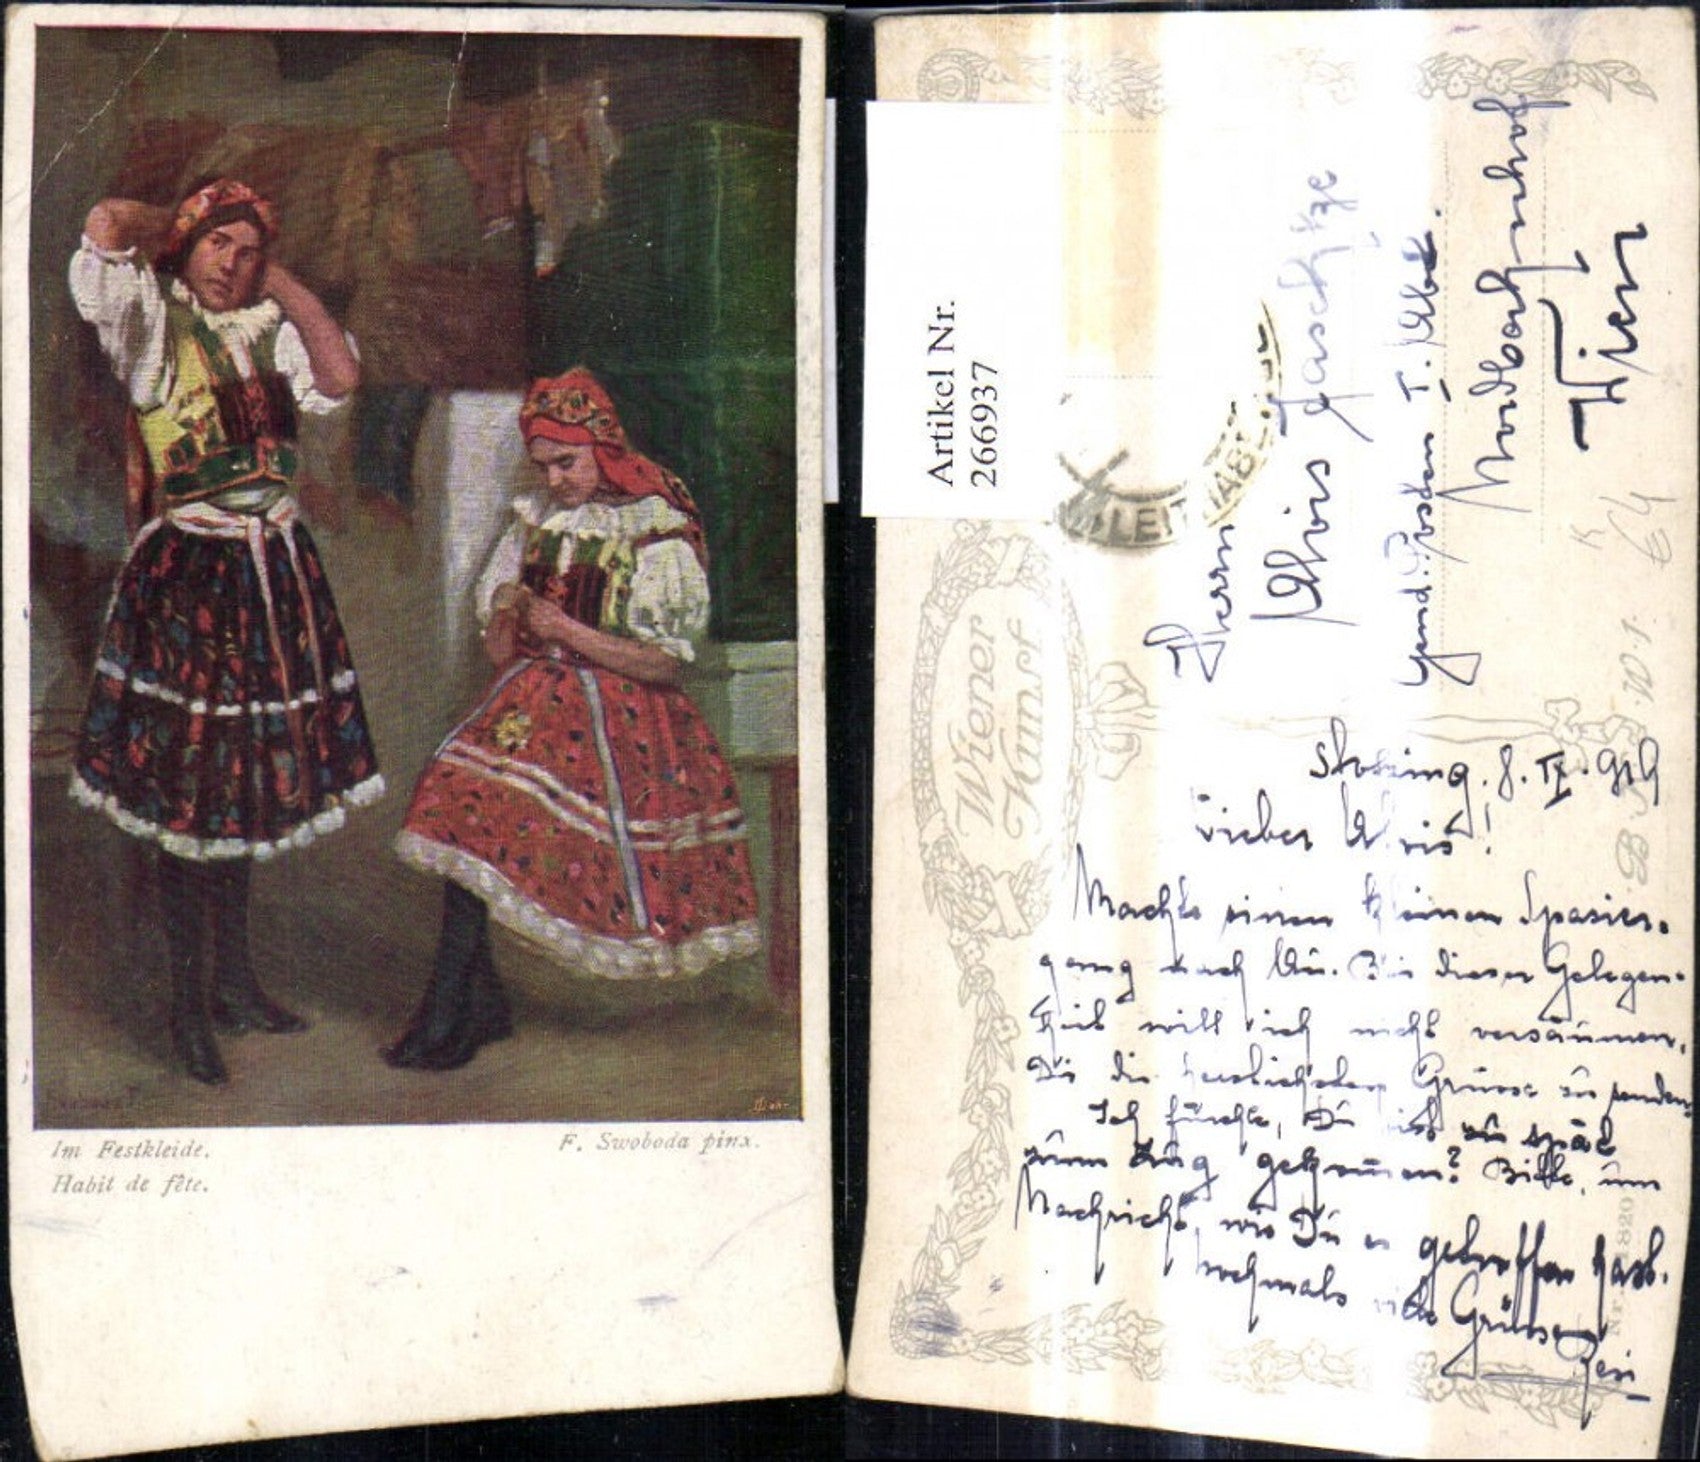 Im Festkleide.
Habit de fête.
F. Swoboda pinx.
Artikel Nr.
266937
Wiener
Kunst
Herrn
Alois
Nordbahnhof
Wien
8. IX. 919
Lieber Alois!
Machte einen kleinen Spazier-
gang nach Bei dieser Gelegen-
heit will ich nicht versäumen,
Dir die herzlichsten Grüsse zu senden.
Ich fürchte, Du bist zu spät
zum Zug gekommen? Bitte, um
Nachricht, wie Du es getroffen hast.
Nochmals viele Grüsse
B.K.W.I.
Nr.